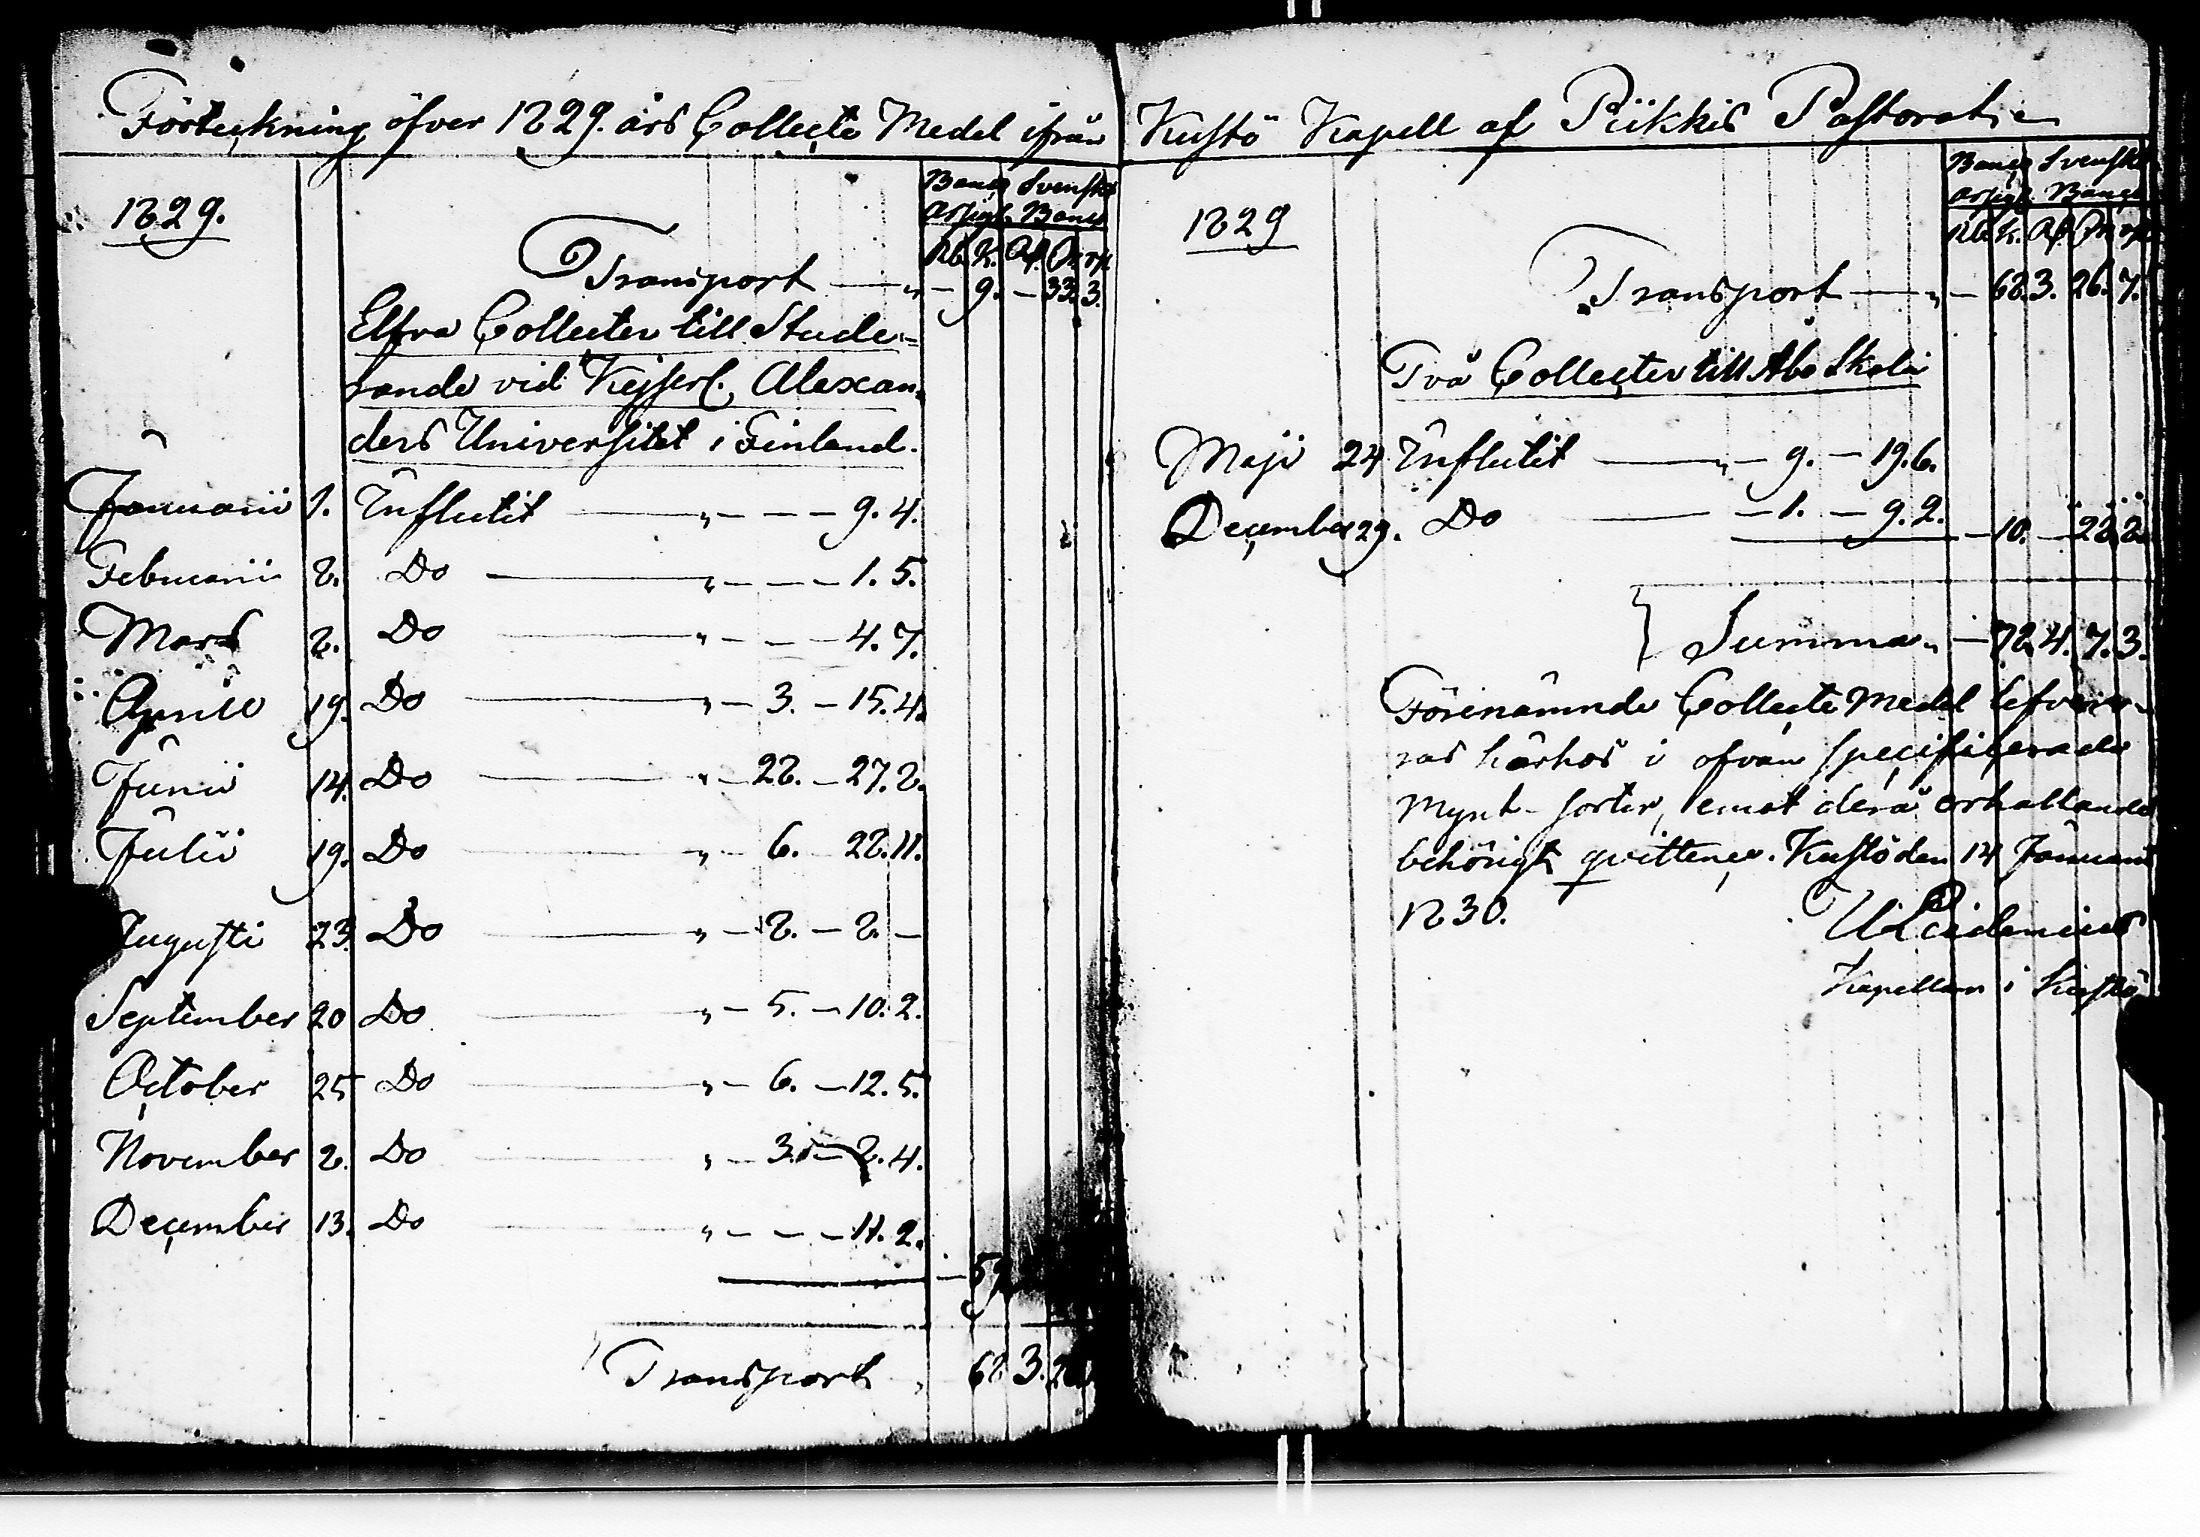 Förteckning öfver 1829. års Collecte Medel ifrån
1829.
Banco Svenska
Assign. Banco
Rb. K. Rd. Sk. rst.
Transport — " — 9. — 33. 3.
Elfva Collecter till Stude-
rande vid Kejserl. Alexan-
ders Universitet i Finland.
Januarii 1. Influtit — " — — — 9. 4.
Februarii 2. Do — " — — — 1. 5.
Mars 2. Do — " — — — 4. 7.
Aprill 19. Do — " — 3. — 15. 4.
Junii 14. Do — " — 28. — 27. 8.
Julii 19. Do — " — 6. — 28. 11.
Augusti 23. Do — " — 8. — 8. —
September 20 Do — " — 5. — 10. 2.
October 25 Do — " — 6. — 12. 5.
November 2. Do — " — 3. — 8. 4.
December 13. Do — " — — — 11. 2.
— 59
Transport " 68 3.
Kustö Kapell af Piikkis Pastorat
1829
Banco Svenska
Assign. Banco
Rb. K. Rd. Sk. rst.
Transport — " — 68. 3. 26. 7.
Två Collecter till Åbo Skola
Maji 24 Influtit — " — 9. — 19. 6.
December 29. Do — — 1. — 9. 2. — 10. — 28. 8.
Summa " — 78. 4. 7. 3.
Förenämnde Collecte Medel lefvere-
ras härhos i ofvan specificerade
Mynt-sorter, emot derå erhållande
behörigt qvittence. Kustö den 14 Januarii
1830.
Kapellan i Kustö